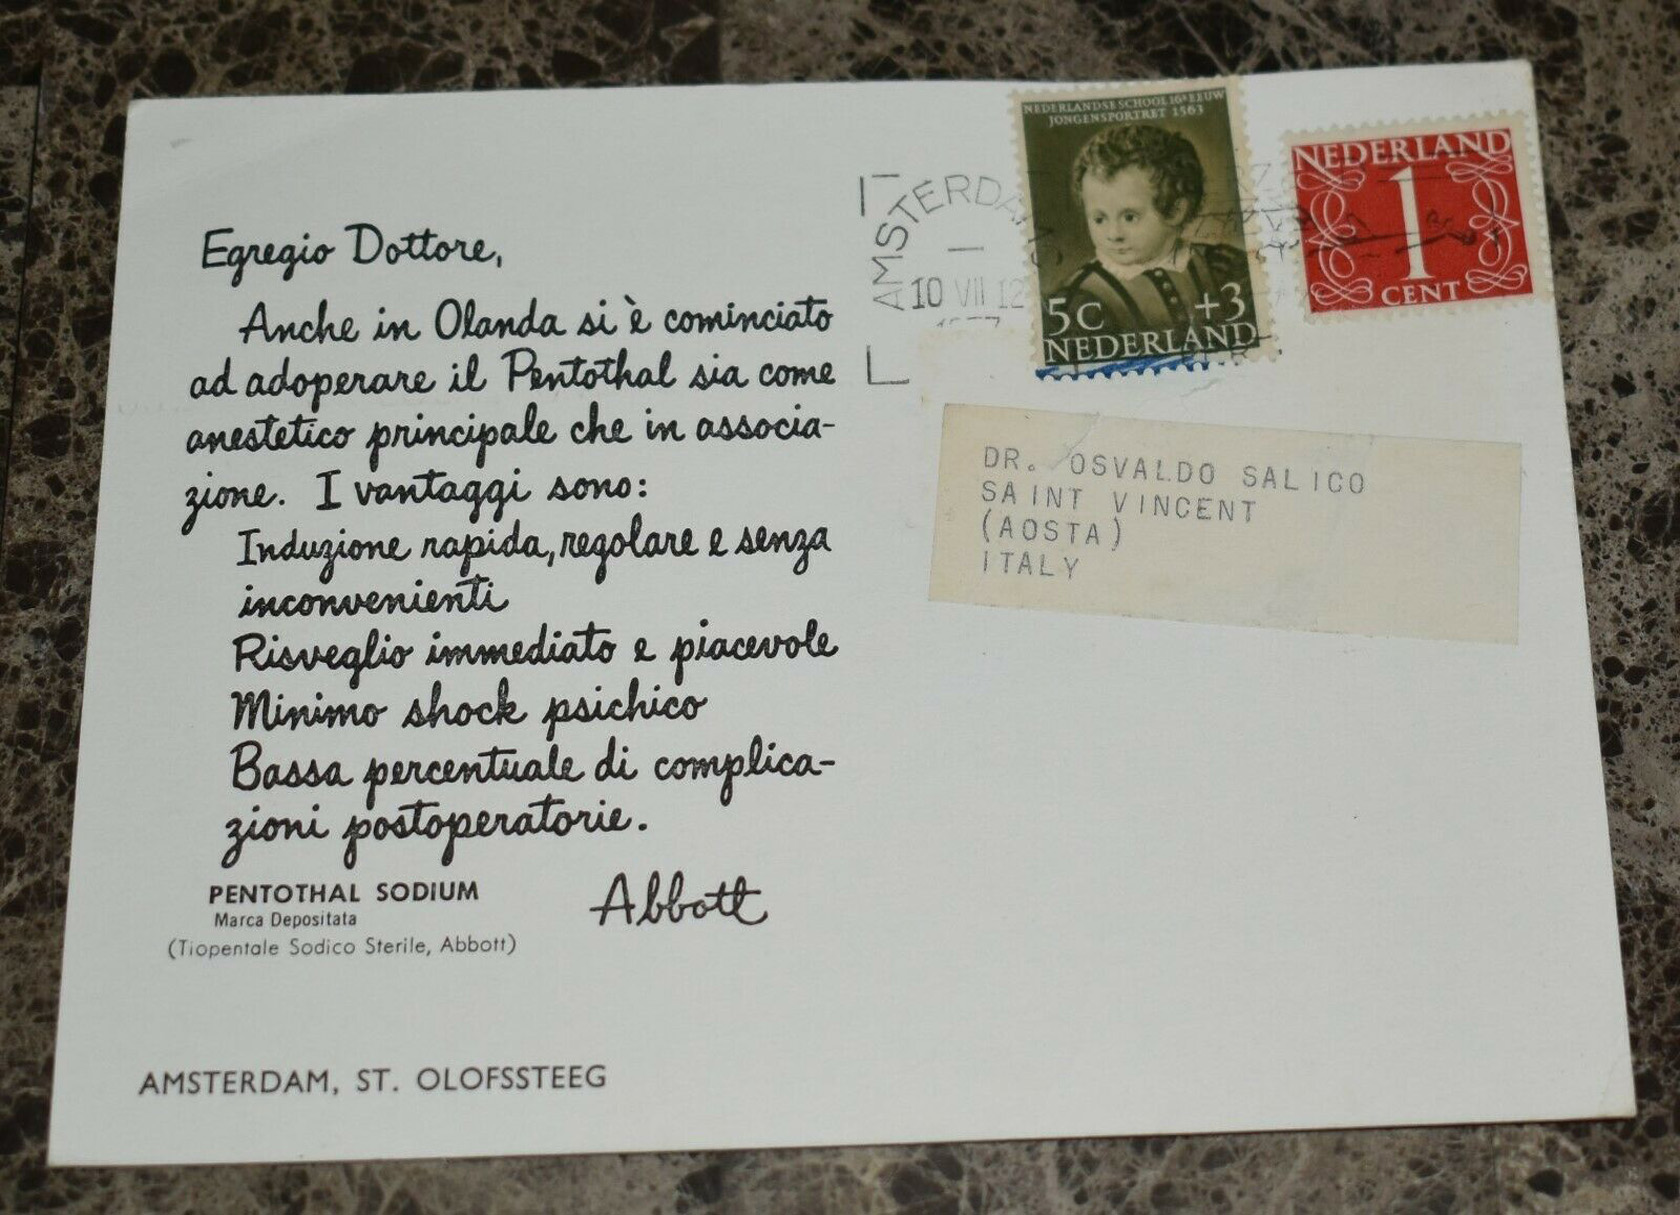 Egregio Dottore,
Anche in Olanda si è cominciato
ad adoperare il Pentothal sia come
anestetico principale che in associa-
zione. I vantaggi sono:
Induzione rapida, regolare e senza
inconvenienti
Risveglio immediato e piacevole
Minimo shock psichico
Bassa percentuale di complica-
zioni postoperatorie.
PENTOTHAL SODIUM
Marca Depositata
(Tiopentale Sodico Sterile, Abbott)
Abbott
AMSTERDAM, ST. OLOFSSTEEG
AMSTERDAM
10 VII 12
NEDERLANDSE SCHOOL 16e EEUW
JONGENSPORTRET 1563
5C +3
NEDERLAND
NEDERLAND
1
CENT
DR. OSVALDO SALICO
SAINT VINCENT
(AOSTA)
ITALY